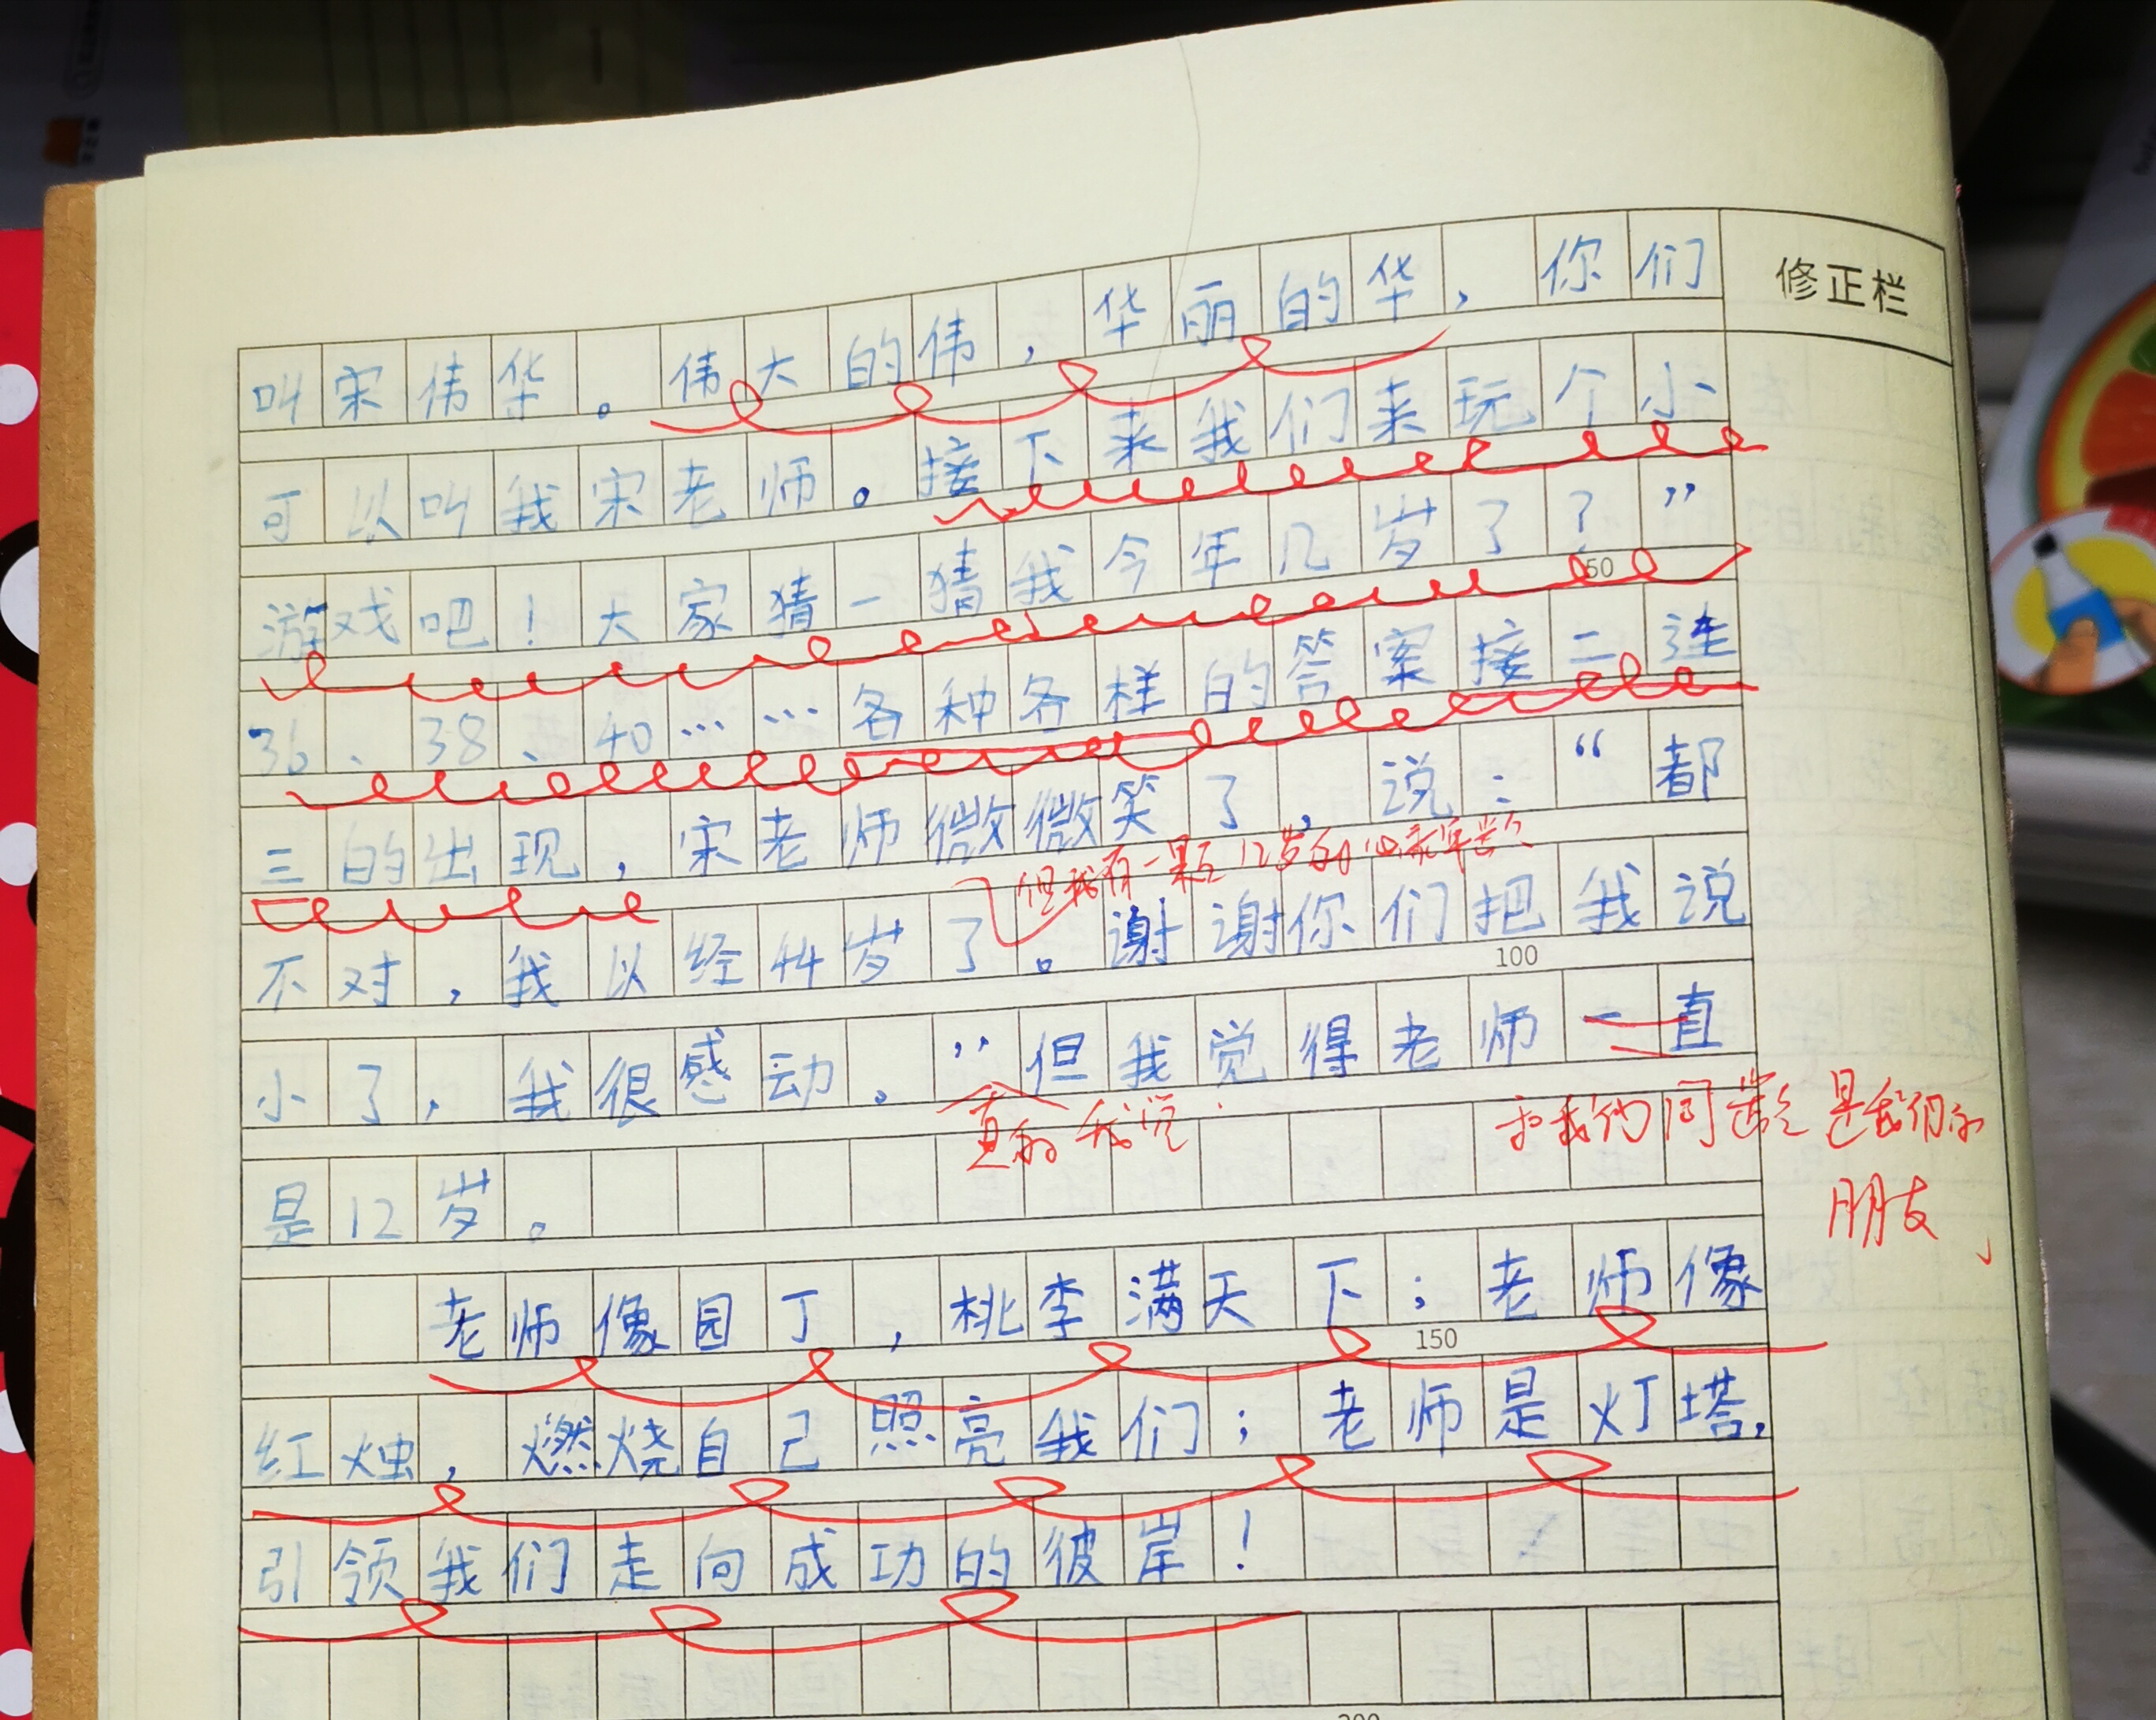 修正栏
叫宋伟华。伟大的伟，华丽的华，你们
可以叫我宋老师。接下来我们来玩个小
游戏吧！大家猜一猜我今年几岁了？”
50
36、38、40……各种各样的答案接二连
三的出现，宋老师微微笑了，说：“都
但我有一颗12岁的心
不对，我以经44岁了。谢谢你们把我说
100
小了，我很感动。”但我觉得老师一直
真的我说
和我们同龄是我们的
朋友
是12岁。
老师像园丁，桃李满天下；老师像
150
红烛，燃烧自己照亮我们；老师是灯塔，
引领我们走向成功的彼岸！
200